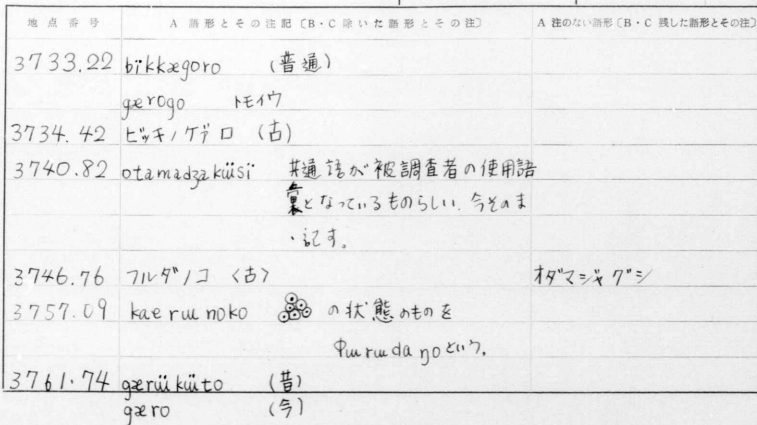 地点番号 A 語形とその注記〔B・C 除いた語形とその注〕 A 注のない語形〔B・C 残した語形とその注〕
3733.22 bïkkægoro (普通)
gærogo トモイウ
3734.42 ビッキノゲァロ (古)
3740.82 otamadʒaküsï 共通語が被調査者の使用語
彙となっているものらしい. 今そのま
、記す。
3746.76 フルダノコ 〈古〉 オダマジャグシ
3757.09 kaerɯnoko の状態のものを
ɸɯrɯdaŋoという。
3761.74 gærüküto (昔)
gæro (今)